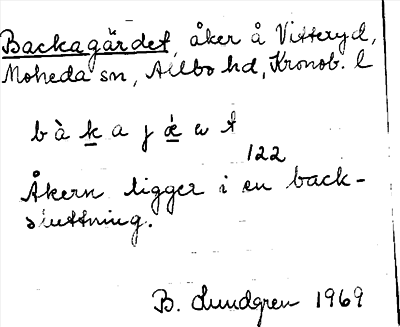 Backagärdet, åker å Vitteryd,
Moheda sn, Allbo hd, Kronob. l
b à k a j æ̀ e t
122
Åkern ligger i en back-
sluttning.
B. Lundgren 1969